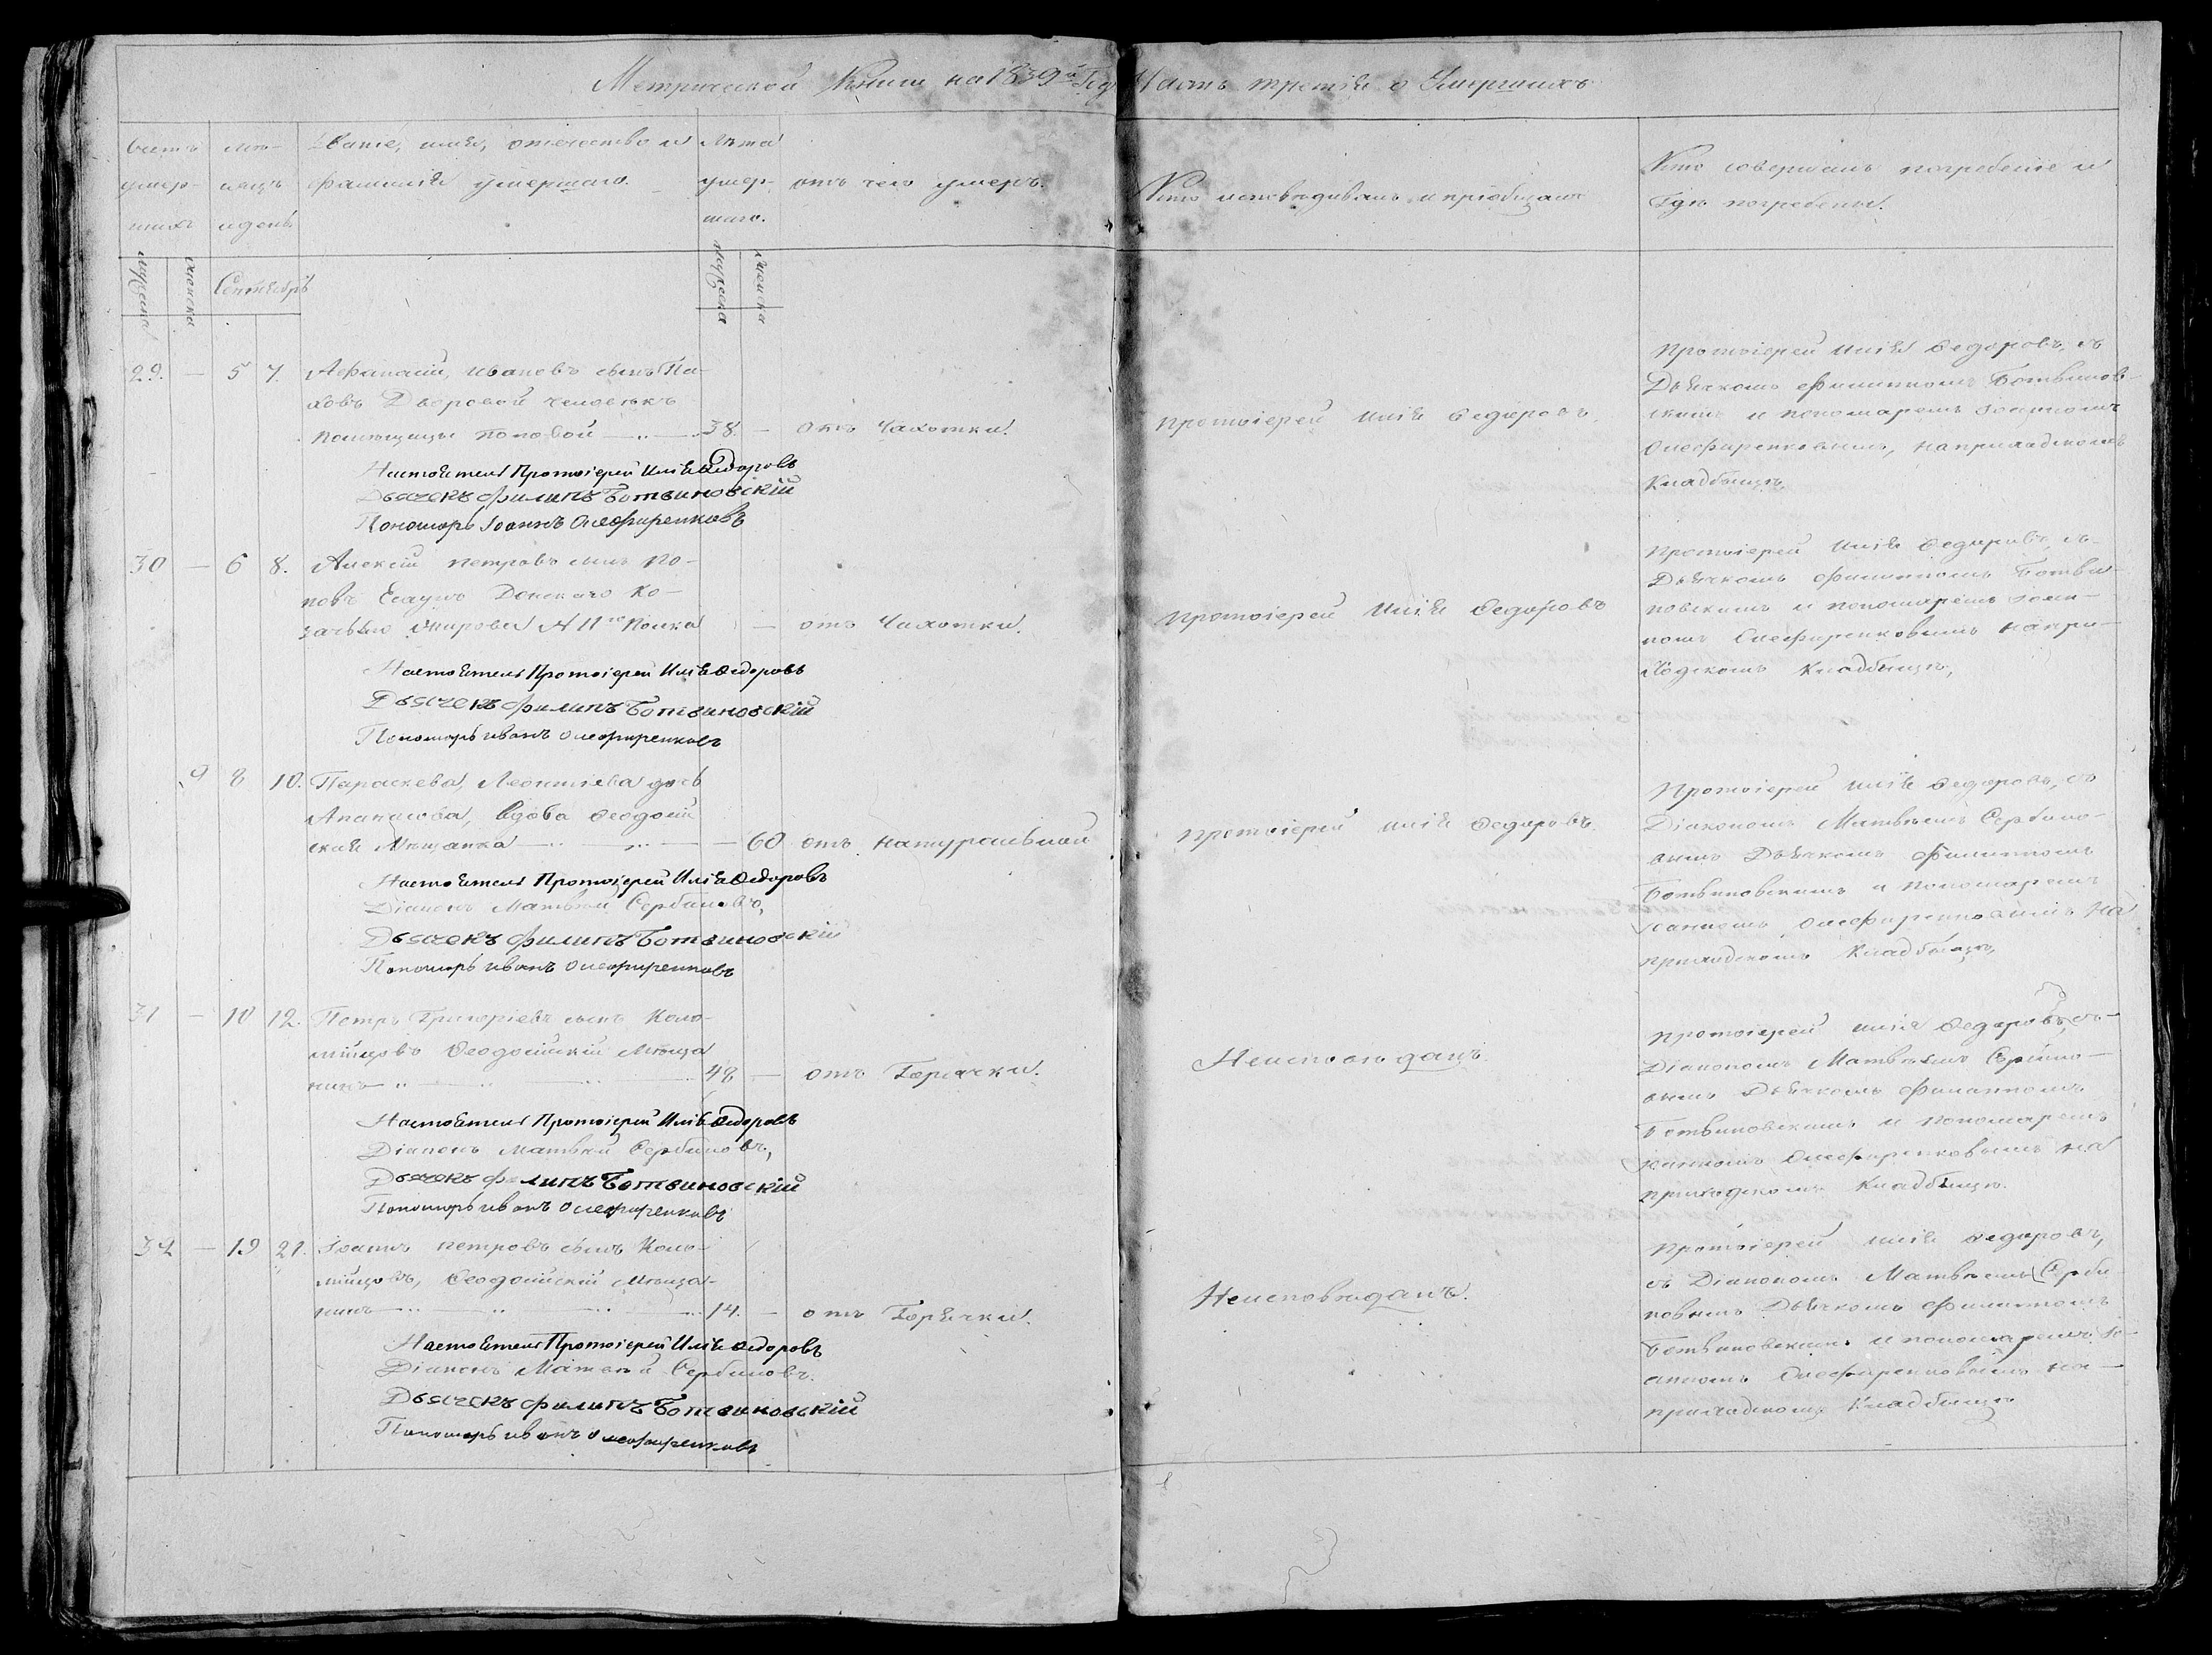 Метрической Книги на 1839й Годъ Часть третія о Умершихъ
Счетъ умер-шихъ
мѣ-сяцъ и день
Званіе, имя, отечество и фамилія умершаго.
Лѣта умер-шаго.
отъ чего умеръ.
Кто исповѣдывалъ и пріобщалъ
Кто совершалъ погребеніе и
Гдѣ погребены.
мужеска
женска
Сентябрь
мужеска
женска
29. — 5 7. Афанасій, ивановъ сынъ Па-
ховъ Дворовой человѣкъ
помѣщицы поповой — „ — 38. — отъ Чахотки.
протоіерей илія Ѳедоровъ.
протоіерей илія Ѳедоровъ, съ
Дьячкомъ филиппомъ Ботвинов-
скимъ и пономаремъ Іоанномъ
Олефиренковымъ, на приходскомъ
Кладбищѣ,
Настоятель Протоіерей Илія Ѳедоровъ
Дьячекъ филипъ Ботвиновскій
Пономарь Іоаннъ Олефиренковъ
30 — 6 8. Алексій петровъ сынъ По-
повъ Есаулъ Донскаго Ко-
зачьяго Кирова N 11го Полка — отъ Чахотки.
протоіерей Илія Ѳедоровъ
протоіерей илія Ѳедоровъ, съ-
Дьячкомъ филиппомъ Ботви-
новскимъ и пономаремъ Іоан-
номъ Олефиренковымъ на при-
ходскомъ Кладбищѣ,
Настоятель Протоіерей Илія Ѳедоровъ
Дьячекъ филипъ Ботвиновскій
Пономарь иванъ Олефиренковъ
9 8 10. Параскева, Леонтіева дочь
Апанасова, вдова Ѳеодосій
ская Мѣщанка — „ — — 60 отъ натуральной
протоіерей илія Ѳедоровъ.
Протоіерей илія Ѳедоровъ, съ
Діакономъ Матвѣемъ Сербино-
вымъ Дьячкомъ филиппомъ
Ботвиновскимъ и пономаремъ
Іоанномъ Олефиренковымъ на
приходскомъ Кладбищѣ,
Настоятель Протоіерей Илія Ѳедоровъ
Діаконъ Матвѣй Сербиновъ,
Дьячекъ филипъ Ботвиновскій
Пономарь иванъ Олефиренковъ
31 — 10 12. Петръ Григоріевъ сынъ Коло-
мійцовъ Ѳеодосійскій Мѣща
нинъ — „ — 48 — отъ Горячки.
Неисповѣданъ.
протоіерей илія Ѳедоровъ, съ-
Діакономъ Матвѣемъ Сербино-
вымъ Дьячкомъ филиппомъ
Ботвиновскимъ и пономаремъ
Іоанномъ Олефиренковымъ на
приходскомъ Кладбищѣ.
Настоятель Протоіерей Илія Ѳедоровъ
Діаконъ Матвѣй Сербиновъ,
Дьячекъ филипъ Ботвиновскій
Пономарь иванъ Олефиренковъ
32 — 19 21. Іоаннъ петровъ сынъ Коло-
мійцовъ, Ѳеодосійскій Мѣща-
нинъ — „ — 14. — отъ Горячки.
Неисповѣданъ.
протоіерей илія Ѳедоровъ,
съ Діакономъ Матвѣемъ Серби-
новымъ Дьячкомъ филиппомъ
Ботвиновскимъ и пономаремъ Іо-
анномъ Олефиренковымъ на-
приходскомъ Кладбищѣ
Настоятель Протоіерей Илія Ѳедоровъ
Діаконъ Матвѣй Сербиновъ.
Дьячекъ филипъ Ботвиновскій
Пономарь иванъ Олефиренковъ